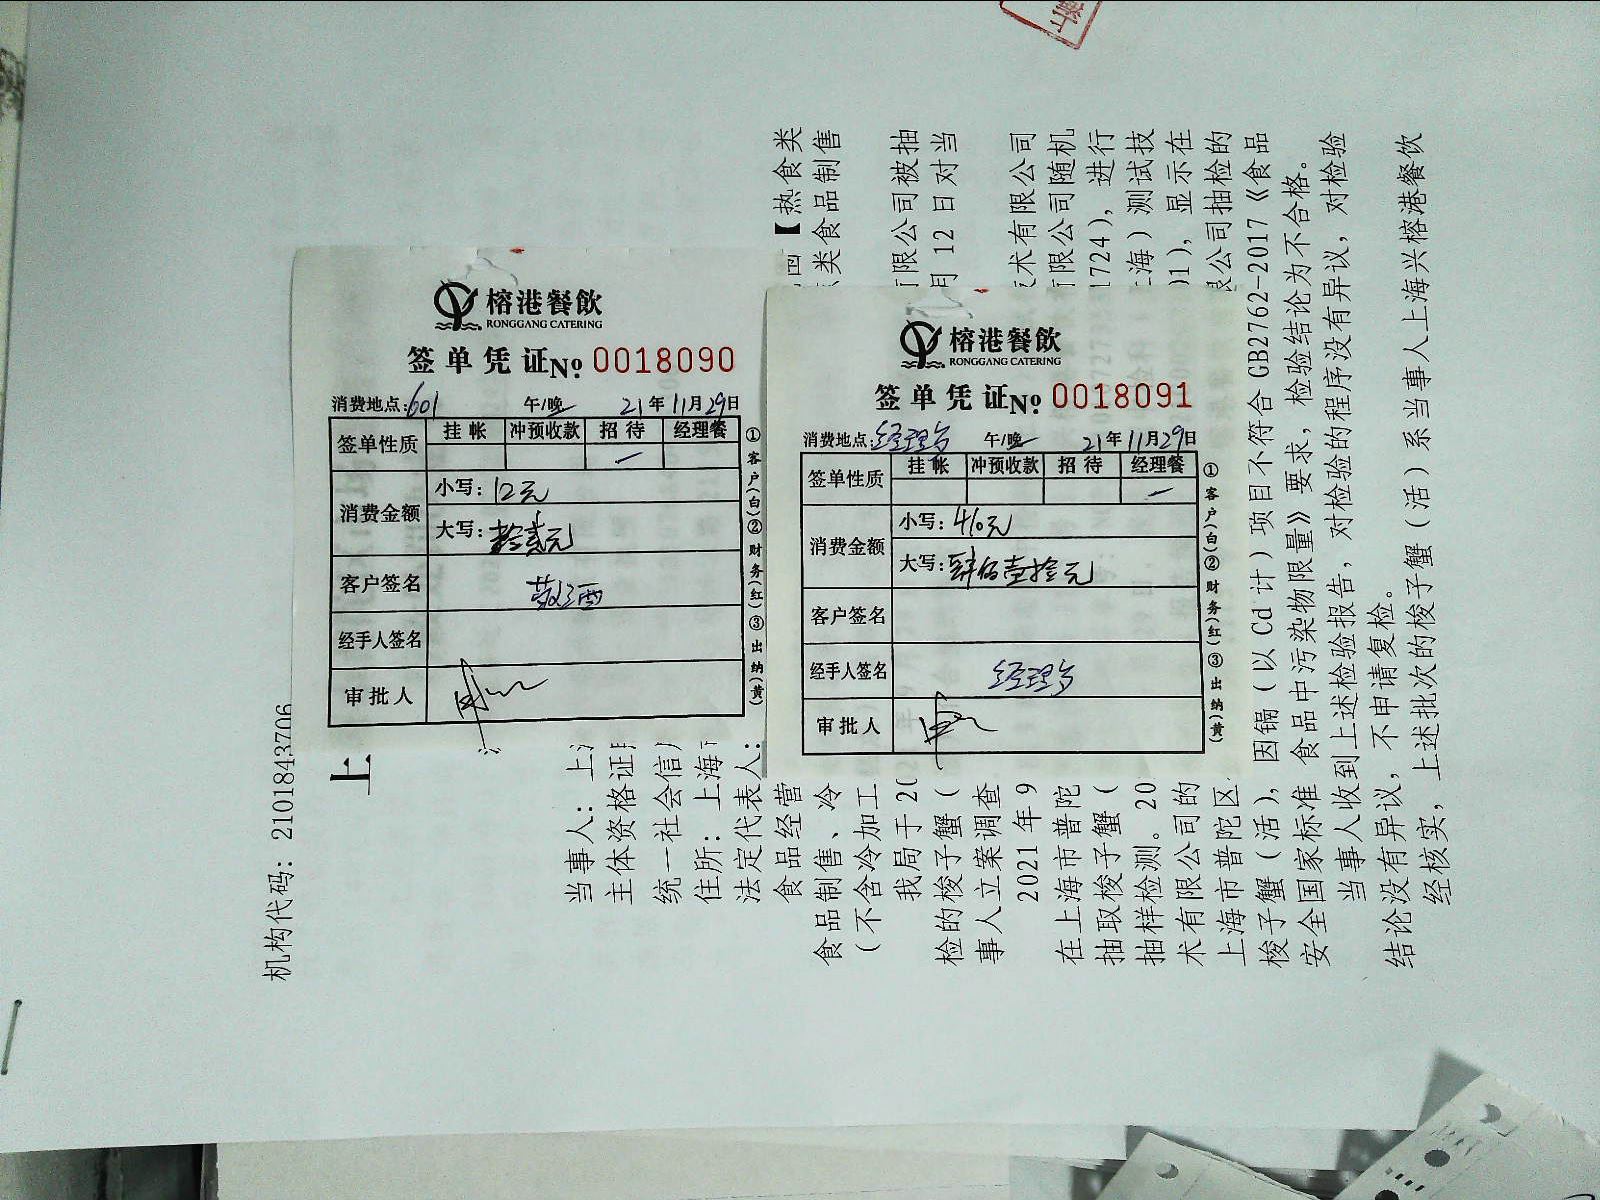 榕港餐飲
RONGGANG CATERING
签单凭证 No. 0018090
消费地点: 601 午/晚 21年11月29日
签单性质 挂帐 冲预收款 招待 经理餐
消费金额 小写: 12元
大写: 拾贰元
客户签名 敬酒
经手人签名
审批人
①客户(白)②财务(红)③出纳(黄)
榕港餐飲
RONGGANG CATERING
签单凭证 No. 0018091
消费地点: 经理餐 午/晚 21年11月29日
签单性质 挂帐 冲预收款 招待 经理餐
消费金额 小写: 410元
大写: 肆佰壹拾元
客户签名
经手人签名 经理餐
审批人
①客户(白)②财务(红)③出纳(黄)
机构代码: 2101843706
上
当事人: 上
主体资格证
统一社会信
住所: 上海
法定代表人:
食品经营 【热食类
食品制售、冷 类食品制售
(不含冷加工
我局于 20 有限公司被抽
检的梭子蟹( 月 12 日对当
事人立案调查
2021 年 9 技术有限公司
在上海市普陀 有限公司随机
抽取梭子蟹( 1724), 进行
抽样检测。20 上海)测试技
术有限公司的 01), 显示在
上海市普陀区 限公司抽检的
梭子蟹(活), 因镉(以 Cd 计)项目不符合 GB2762-2017《食品
安全国家标准 食品中污染物限量》要求, 检验结论为不合格。
当事人收到上述检验报告, 对检验的程序没有异议, 对检验
结论没有异议, 不申请复检。
经核实, 上述批次的梭子蟹(活)系当事人上海兴榕港餐饮